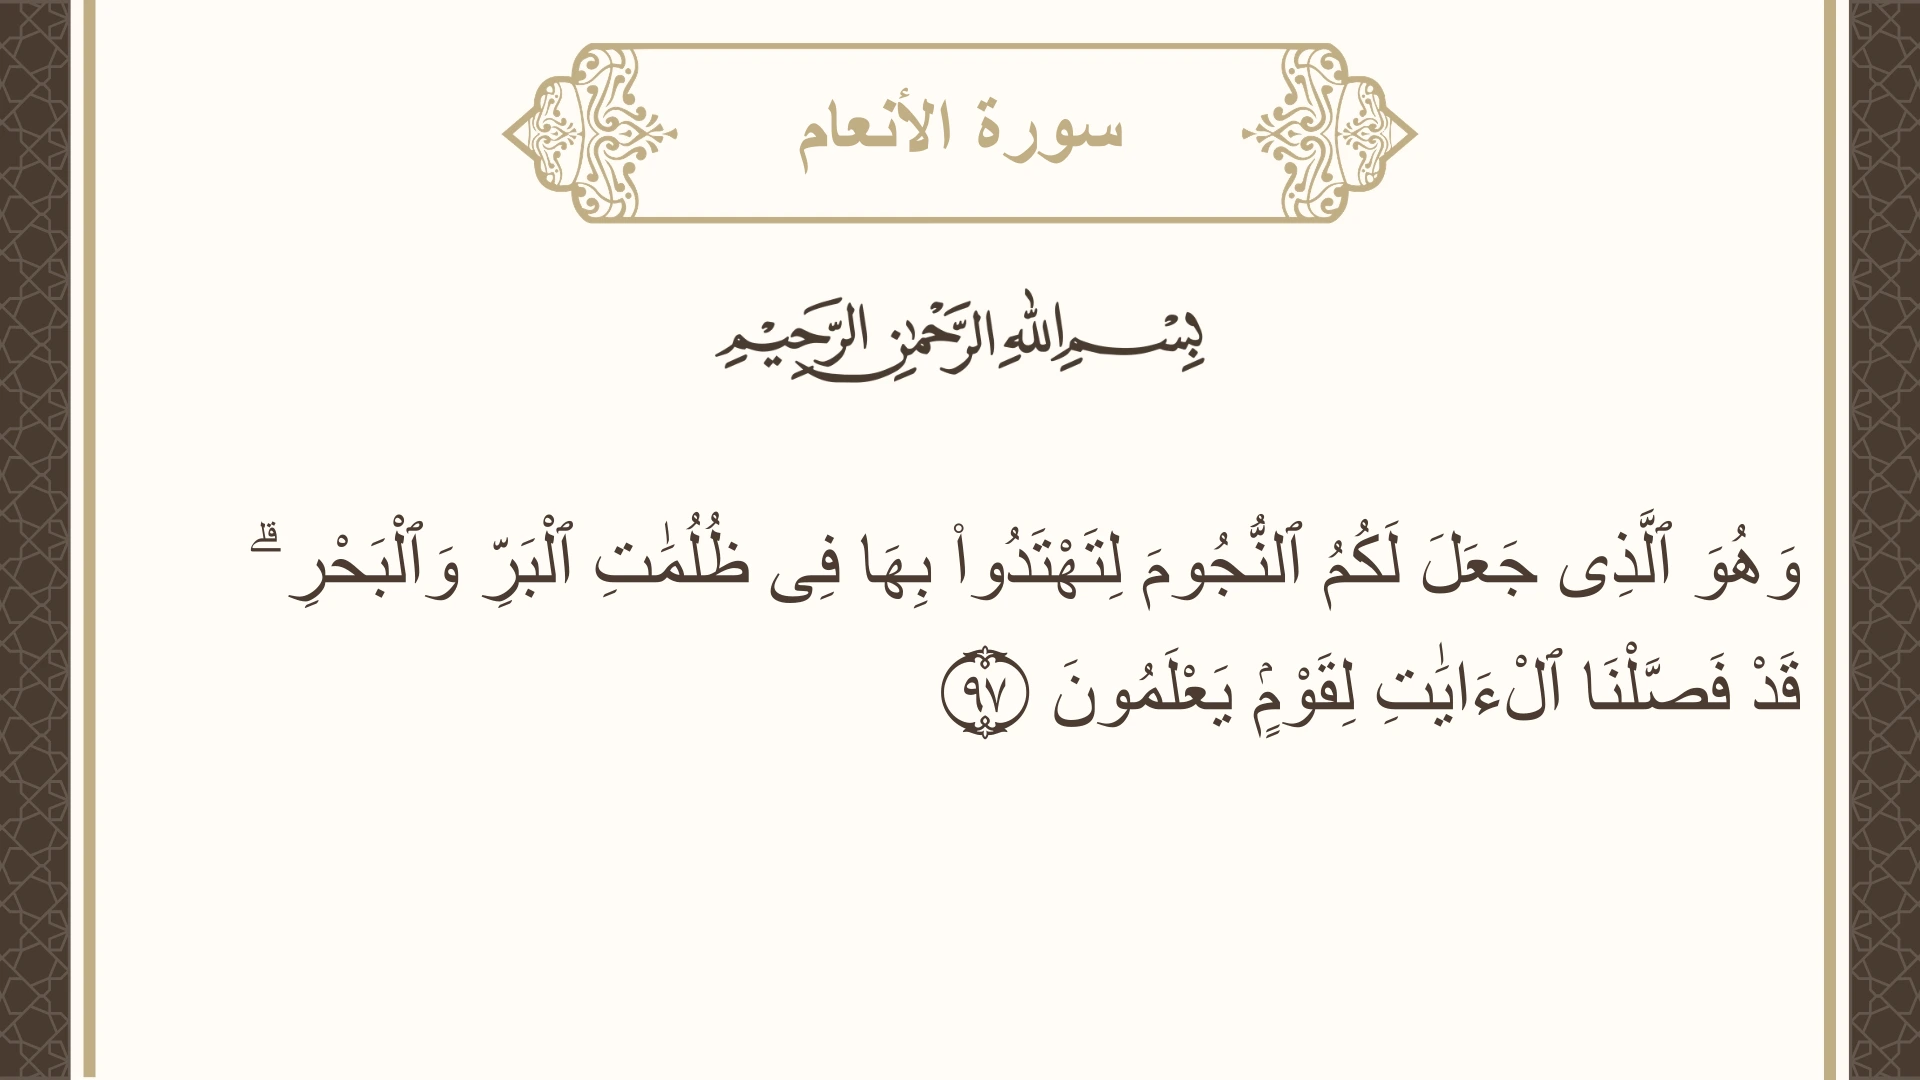 سورة الأنعام
بِسْمِ اللهِ الرَّحْمٰنِ الرَّحِيْمِ
وَهُوَ ٱلَّذِى جَعَلَ لَكُمُ ٱلنُّجُومَ لِتَهْتَدُوا۟ بِهَا فِى ظُلُمَٰتِ ٱلْبَرِّ وَٱلْبَحْرِ ۗ
قَدْ فَصَّلْنَا ٱلْءَايَٰتِ لِقَوْمٍۢ يَعْلَمُونَ ٩٧